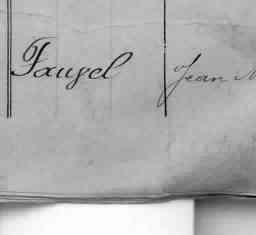 Faupel Jean